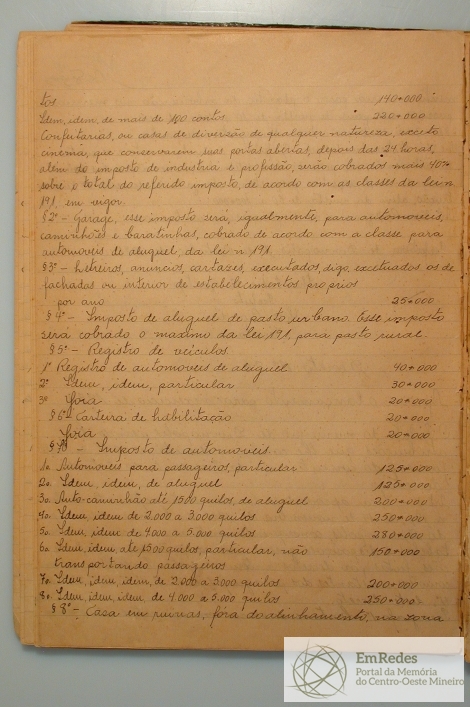 tos 140$000
Idem, idem, de mais de 100 contos. 220$000
Confeitarias, ou casas de diversão de qualquer natureza, exceto
cinema, que conservarem suas portas abertas, depois das 24 horas,
alem do imposto de industria e profissão, serão cobrados mais 40%
sobre o total do referido imposto, de acordo com as classes da lei n
191, em vigor.
§2º - Garage, esse imposto será, igualmente, para automoveis,
caminhões e baratinhas, cobrado de acordo com a classe para
automoveis de aluguel, da lei n 191.
§3º - Letreiros, anuncios, cartazes, executados, digo, excetuados os de
fachadas ou interior de estabelecimentos proprios
por ano 25$000
§4º - Imposto de aluguel de pasto urbano. Esse imposto
será cobrado o maximo da lei 191, para pasto rural.
§5º - Registro de veiculos.
1º Registro de automoveis de aluguel 40$000
2º Idem, idem, particular 30$000
3º Joia 20$000
§6º Carteira de habilitação 20$000
Joia 20$000
§7º - Imposto de automoveis
1o. Automoveis para passageiros, particular 125$000
2o. Idem, idem, de aluguel 125$000
3o. Auto-caminhão até 1500 quilos, de aluguel 200$000
4o. Idem, idem de 2.000 a 3.000 quilos 250$000
5o. Idem, idem de 4.000 a 5.000 quilos 280$000
6o. Idem, idem até 1500 quilos, particular, não 150$000
transportando passageiros
7o. Idem, idem, idem, de 2.000 a 3.000 quilos 200$000
8o. Idem, idem, idem, de 4.000 a 5.000 quilos 250$000
§8º - Casa em ruinas, fora do alinhamento, na zona
EmRedes
Portal da Memória
do Centro-Oeste Mineiro